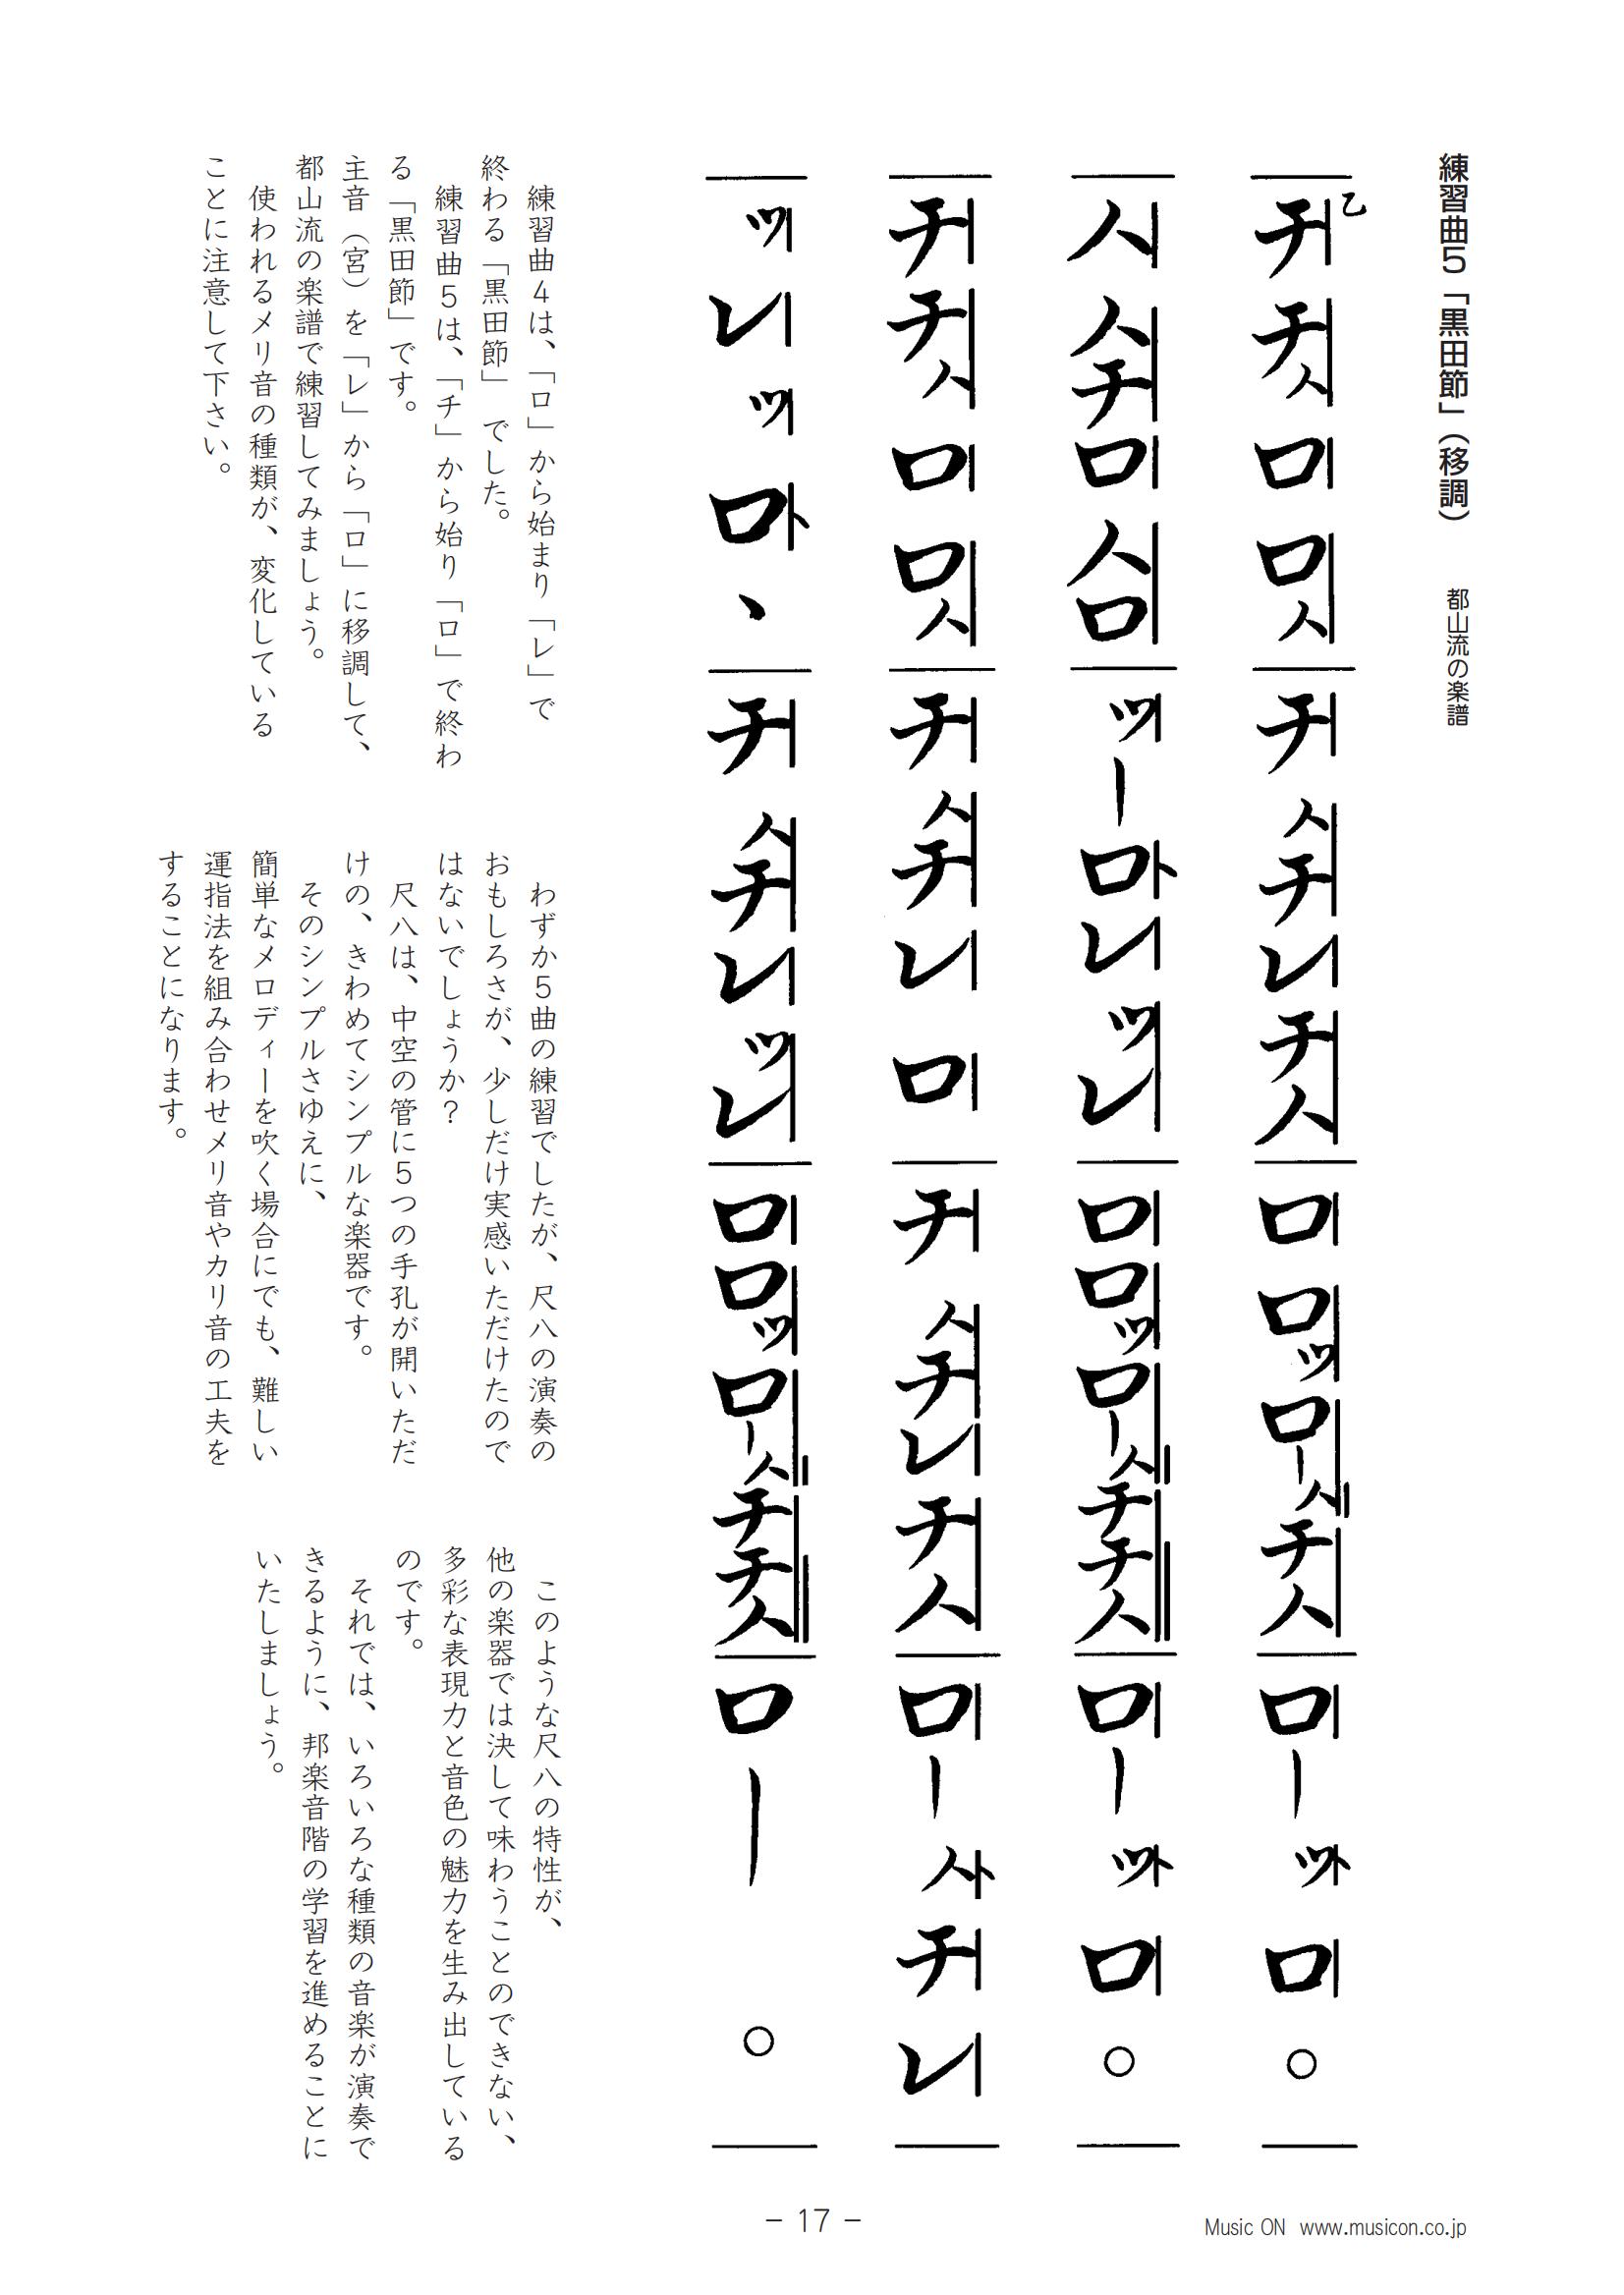 練習曲5「黒田節」(移調)　都山流の楽譜
乙チチハロロハ チハチレチハ ロロツローハチハ ローツロ○
ハハチロハロ ツーロレツレ ロロツローハチチハ ローツロ○
チチハロロハ チハチレロ チハチレチハ ローハチレ
ツレツロ、 チハチレツレ ロロツローハチチハ ロー○
練習曲4は、「ロ」から始まり「レ」で
終わる「黒田節」でした。
練習曲5は、「チ」から始り「ロ」で終わ
る「黒田節」です。
主音(宮)を「レ」から「ロ」に移調して、
都山流の楽譜で練習してみましょう。
使われるメリ音の種類が、変化している
ことに注意して下さい。
わずか5曲の練習でしたが、尺八の演奏の
おもしろさが、少しだけ実感いただけたので
はないでしょうか?
尺八は、中空の管に5つの手孔が開いただ
けの、きわめてシンプルな楽器です。
そのシンプルさゆえに、
簡単なメロディーを吹く場合にでも、難しい
運指法を組み合わせメリ音やカリ音の工夫を
することになります。
このような尺八の特性が、
他の楽器では決して味わうことのできない、
多彩な表現力と音色の魅力を生み出している
のです。
それでは、いろいろな種類の音楽が演奏で
きるように、邦楽音階の学習を進めることに
いたしましょう。
- 17 -
Music ON www.musicon.co.jp